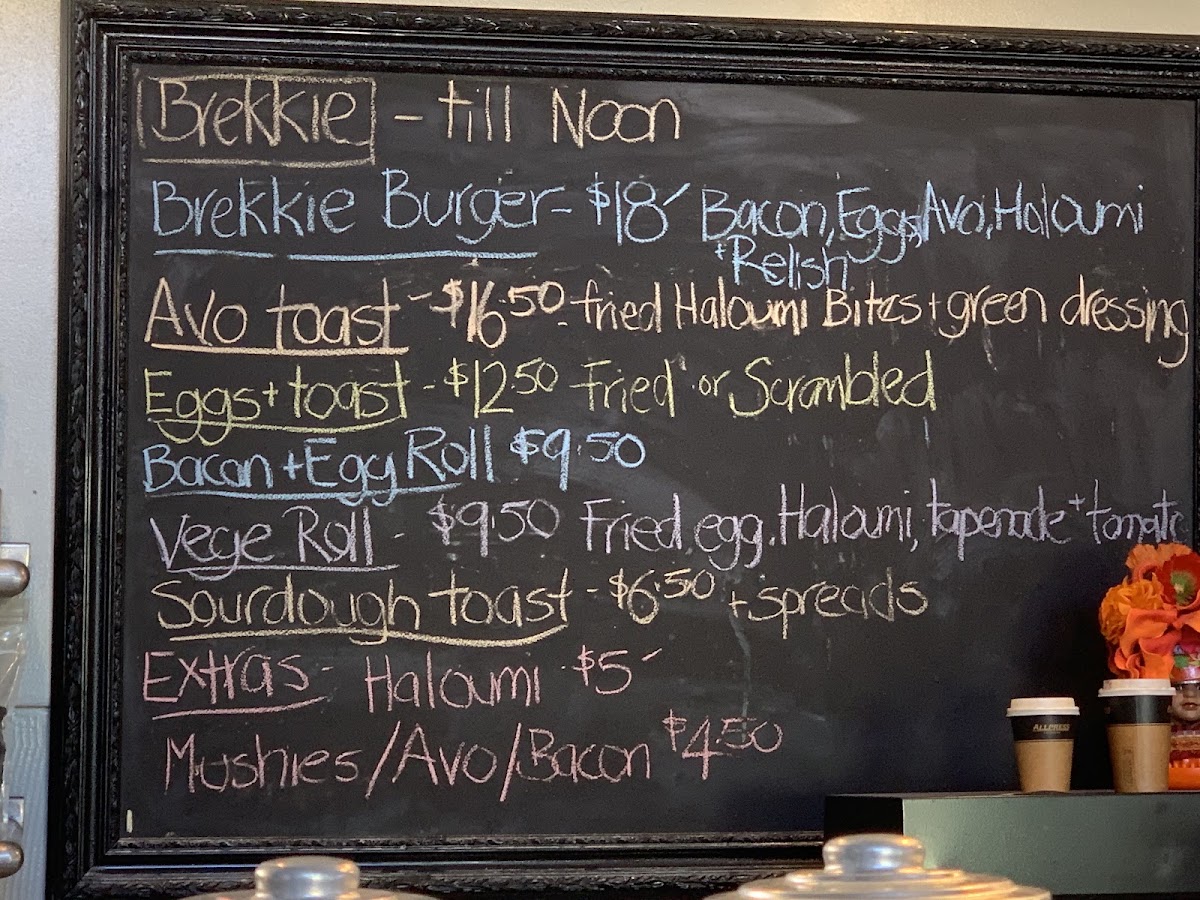 Brekkie - till Noon
Brekkie Burger - $18 Bacon, Eggs, Avo, Haloumi
+ Relish
Avo toast - $16.50 - fried Haloumi Bites + green dressing
Eggs + toast - $12.50 Fried or Scrambled
Bacon + Egg Roll $9.50
Vege Roll - $9.50 Fried egg, Haloumi, tapenade + tomato
Sourdough toast - $6.50 + spreads
Extras - Haloumi $5
Mushies / Avo / Bacon $4.50
ALLPRESS